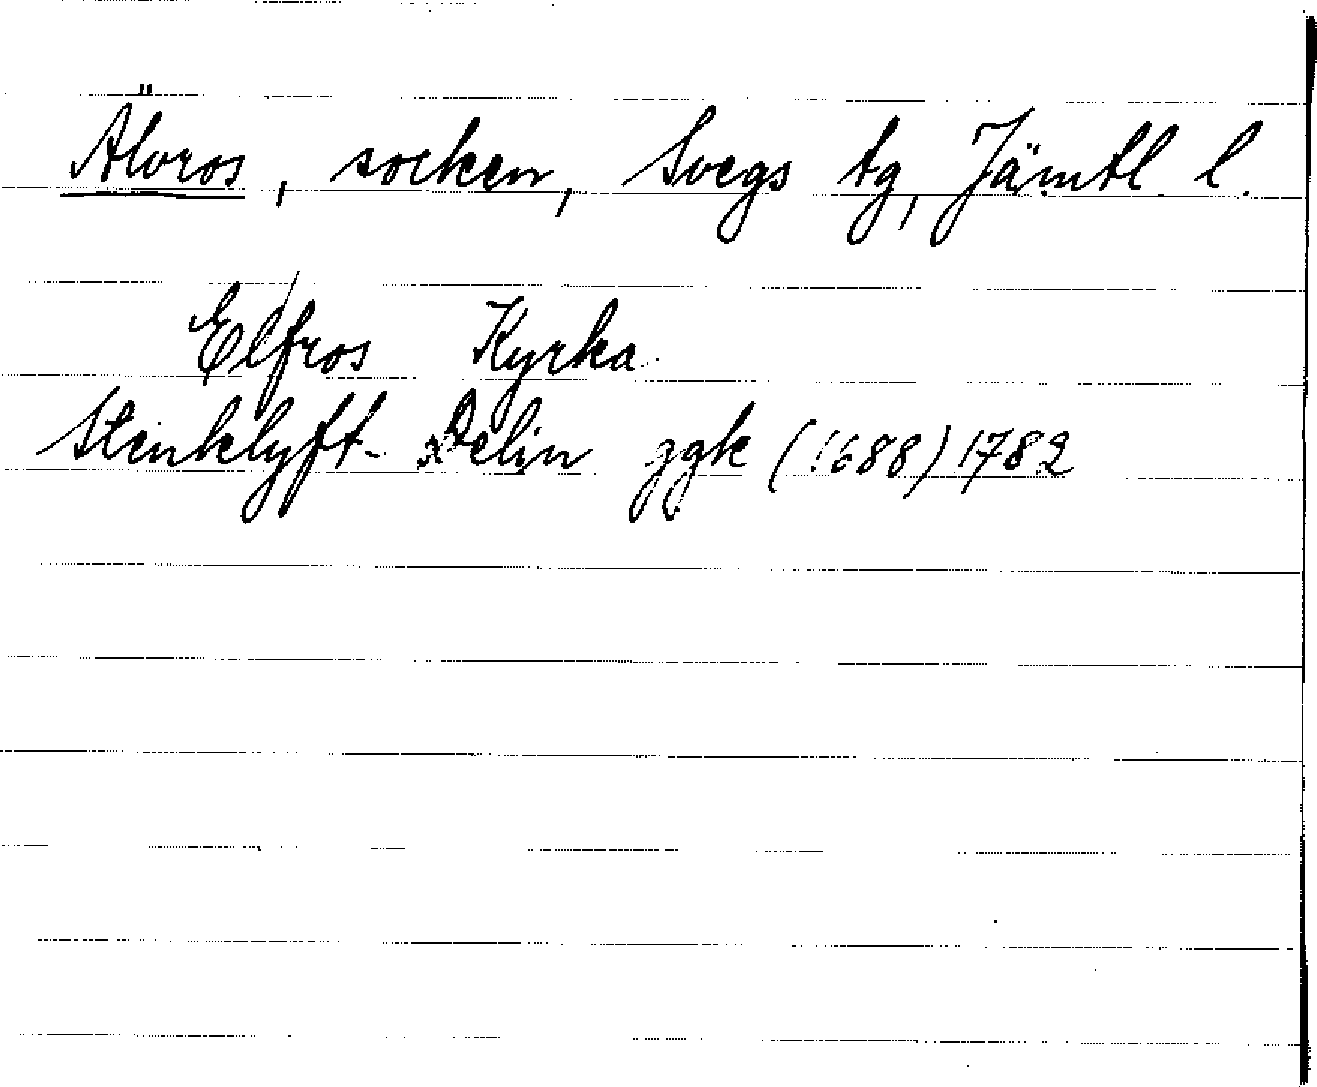 Älvros, socken, Svegs tg, Jämtl l.
Elfros Kyrka
Stenklyft-Delin ggk (1688) 1782